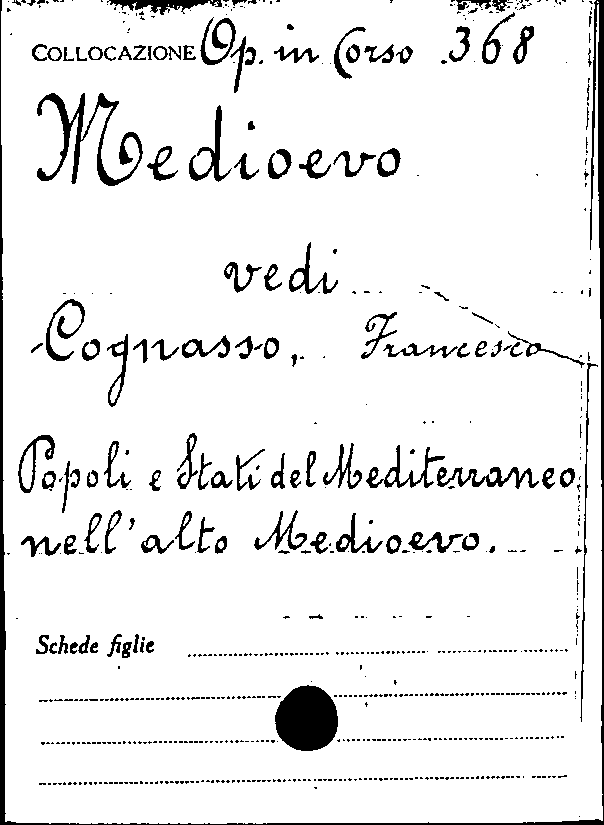 COLLOCAZIONE Op. in Corso 368
Medioevo
vedi
Cognasso, Francesco
Popoli e Stati del Mediterraneo
nell'alto Medioevo.
Schede figlie